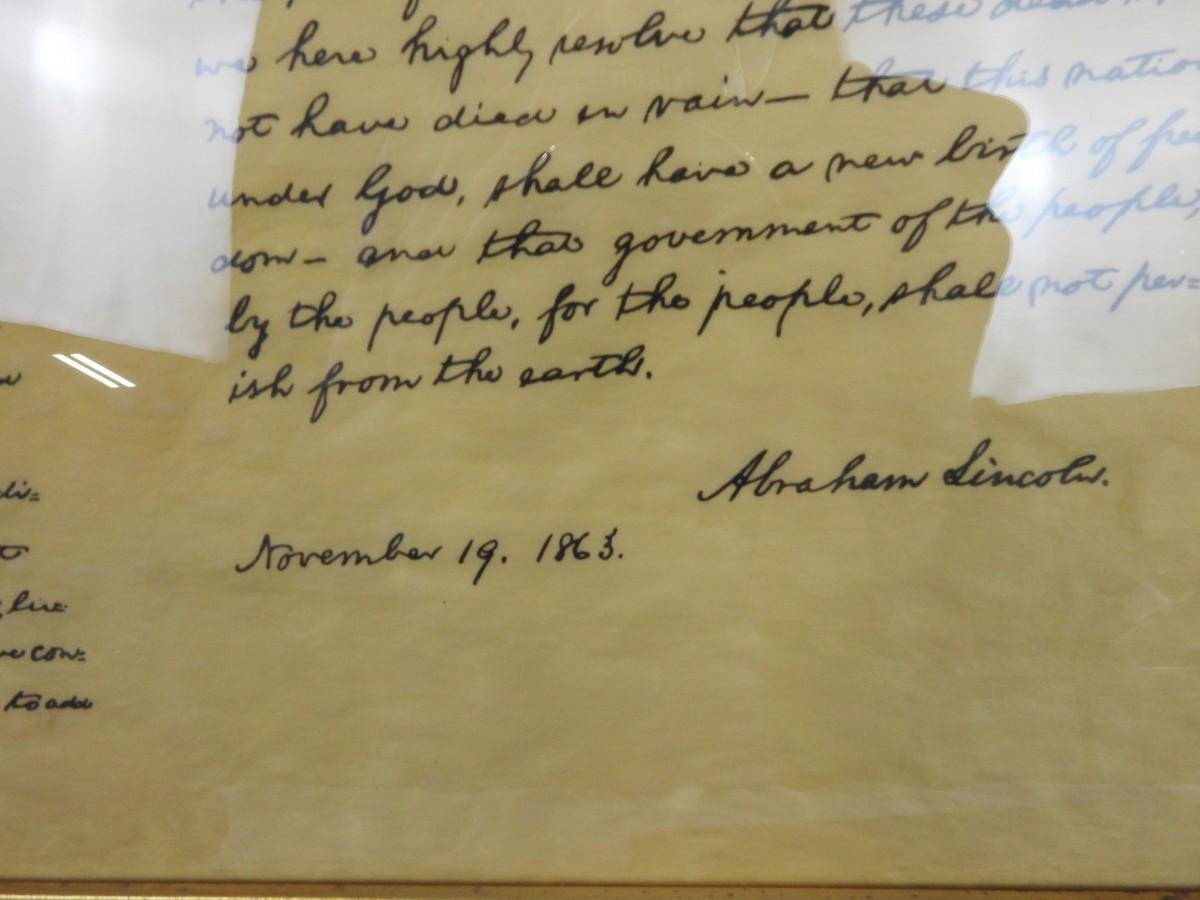 we here highly resolve that these dead
not have died in vain— that this nation
under God, shall have a new birth of free
dom— and that government of the people,
by the people, for the people, shall not per=
ish from the earth.
Abraham Lincoln.
November 19. 1863.
di=
live
we con=
to add